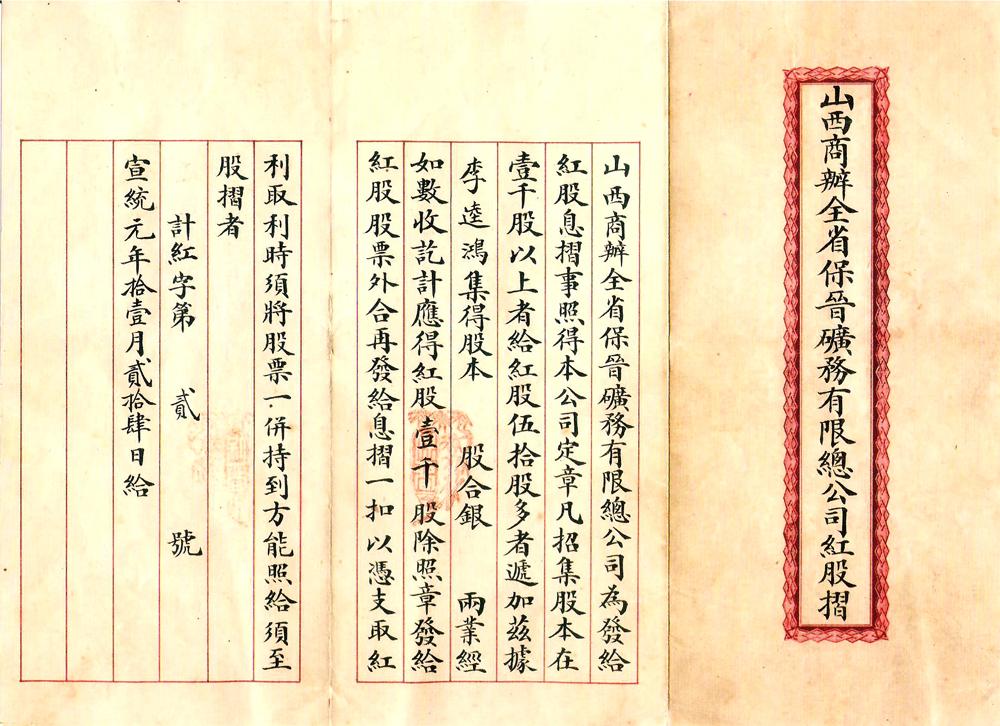 山西商辦全省保晉礦務有限總公司紅股摺
山西商辦全省保晉礦務有限總公司為發給
紅股息摺事照得本公司定章凡招集股本在
壹千股以上者給紅股伍拾股多者遞加茲據
李逵鴻集得股本 股合銀 兩業經
如數收訖計應得紅股壹千股除照章發給
紅股股票外合再發給息摺一扣以憑支取紅
利取利時須將股票一併持到方能照給須至
股摺者
計紅字第 貳 號
宣統元年拾壹月貳拾肆日給